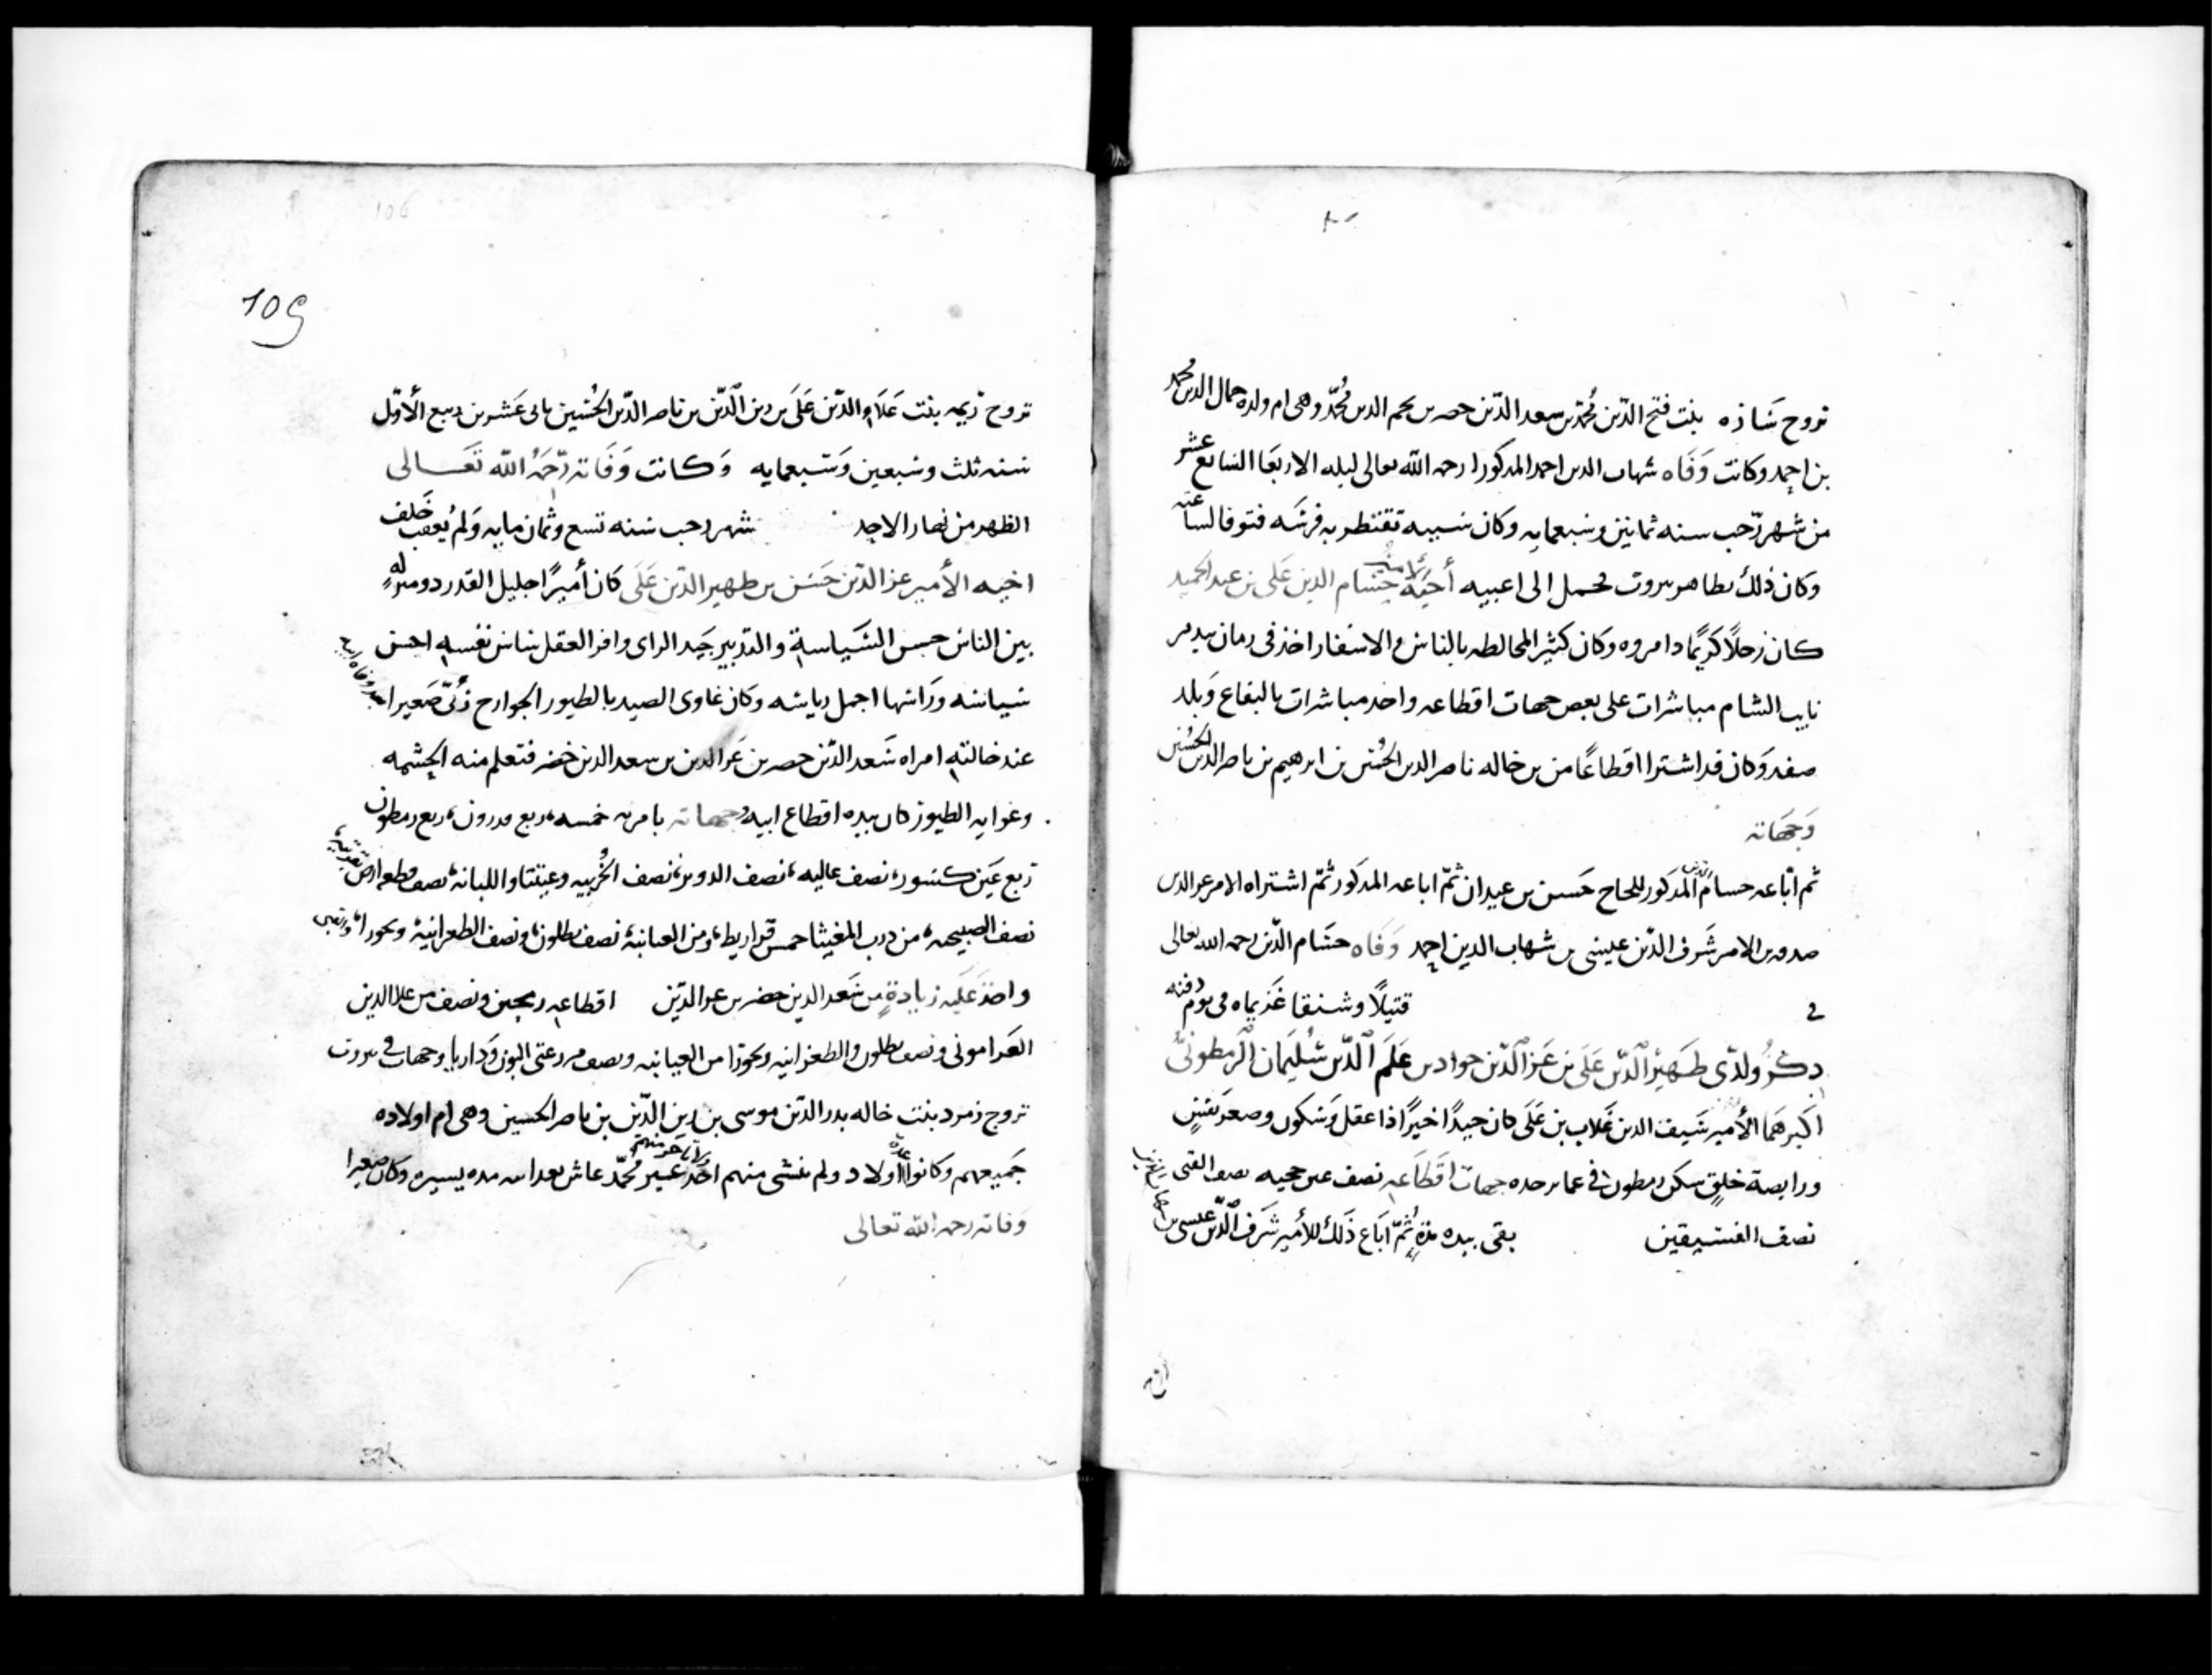 تزوج شاذه بنت فتح الدّين محمّد بن سعد الدّين خضر بن نجم الدين محمّد وهى ام ولده جمال الدين محمد
بن احمد وكانت وَفَاه شهاب الدين احمد المذكور رحمه الله تعالى ليله الاربعا السابع عشر
من شهر رّجب سنه ثمانين وسبعمايه وكان سببه تقنطر به فرسَه فتوفا لساعته
وكان ذلك بظاهر بيروت فحمل الى اعبيه أخيه الامير حسام الدين عَلى بن عبد الحميد
كان رَجلاً كريمًا ذا مروه وكان كثير المخالطه بالناس والاسفار اخذ فى زمان بيدمر
نايب الشام مباشرات على بعض جهات اقطاعه واخذ مباشرات بالبقاع وَبلد
صفد وَكان قد اشترا اقطاعًا من بن خاله ناصر الدين الحُسَين بن ابرهيم بن ناصر الدين الحُسَين
وَجهَاته
ثم اتّباعه حسام الدين المذكور للحاج حَسن بن عيدان ثمّ اباعه المذكور ثمّ اشتراه الامير عز الدين
صدقه بن الامير شَرف الدّين عيسى بن شهاب الدين احمد وَفَاه حسَام الدّين رحمه الله تعالى
فى قتيلاً وشنقا غَريماه فى يوم دفنه
ذكرُ ولدَّى ظَهيْر الدّين عَلَى بن عَز الدّين جواد بن عَلَم الدّين سُليمان الرمطونىُّ
اكبرهَما الأمير سَيف الدين غَلاب بن عَلَى كان جيدًا خيرًا ذا عقل وَسكون وصغر نفسٍ
ورايضة خلقٍ سكن رمطون فى عماير جده جهات اقطَاعه نصف عين حجيه نصف القتى
نصف الفسيقين بقى بيده مدةٍ ثمّ ابَاع ذَلك للأمير شَرف الدّين عيسى بن
109
106
تزوج ريمه بنت عَلَاء الدّين عَلَى بن زين الدّين بن ناصر الدّين الحُسَين ثانى عَشر من ربيع الأوّل
سنه ثلث وسَبعين وَسَبعمايه وَكانت وَفَاته رَّحمَهُ الله تعَالى
الظهر من نهار الاحد شهر رجب سنه تسع وثمان مايه وَلم يُعقب خَلف
اخيه الأمير عز الدّين حَسَن بن ظهير الدّين عَلَى كان أميرًا جليل القدر ذو منزلهٍ
بين الناس حسن السَّياسة والتدبير جَيد الراى وافر العقل ساس نفسه احسن
سياسَه وَرَاسَها اجمل رياسَه وكان غاوى الصيد بالطيور الجوارح رُبّى صَغيرا بعد وفاه ابيه
عند خالتهِ امراه سَعد الدّين خضر بن عَز الدين بن سعد الدين خضر فتعلم منه الحِشمه
وغوايه الطيور كان بيده اقطاع ابيه وجهاته بامريه خمسه، ربع قدرون، ربع رمطون
ربع عَين كسور، نصف عاليه، نصف الدوير، نصف الخُريبه وعيتنا واللبانه، نصف
نصف الصبيحيه، من درب المغيثا خمس قراريط، ومن العبانيه نصف بطلون، ونصف الطعزانية وبحوراُ،
واخذ عَليه زيادةٍ من سَعد الدين خضر بن عز الدّين اقطاعه رمحين ونصف من علا الدين
العَرامونى ونصف بطلون والطعزانيه وبحورا من العبانيه ونصف مزرعتى البون وَداريا وجهات فى بيروت
تزوج زمرد بنت خاله بدر الدّين موسى بن زين الدّين بن ناصر الحسين وهى ام اولاده
جَميعهم وكانوا عدة اولاد ولم ينشى منهم احَد غير محُمّد عاش بعد ابيه مده يسيره وكان صغيرا
وَفاته رحمه الله تعالى